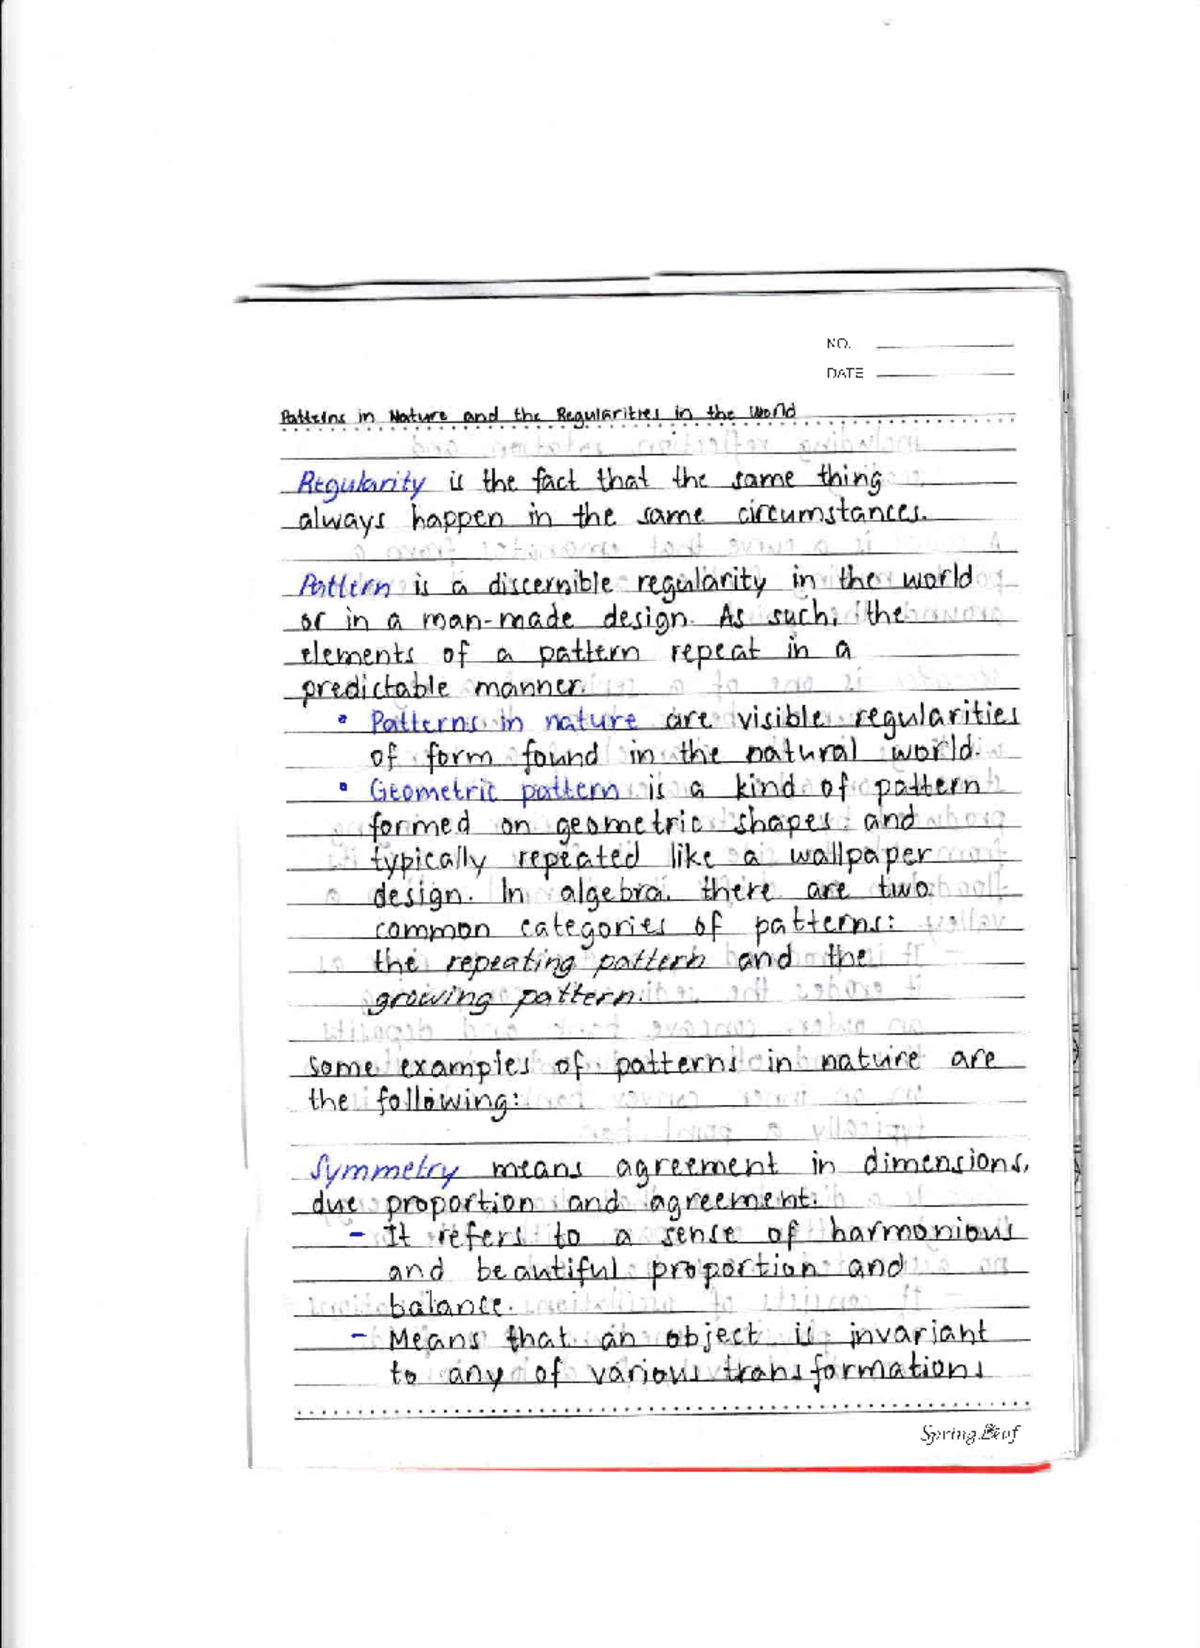 NO.
DATE
Patterns in Nature and the Regularities in the World
Regularity is the fact that the same thing
always happen in the same circumstances.
Pattern is a discernible regularity in the world
or in a man-made design. As such, the
elements of a pattern repeat in a
predictable manner.
• Patterns in nature are visible regularities
of form found in the natural world.
• Geometric pattern is a kind of pattern
formed on geometric shapes and
typically repeated like a wallpaper
design. In algebra, there are two
common categories of patterns:
the repeating pattern and the
growing pattern.
Some examples of patterns in nature are
the following:
Symmetry means agreement in dimensions,
due proportion and agreement.
- It refers to a sense of harmonious
and beautiful proportion and
balance.
- Means that an object is invariant
to any of various transformations
Spring Leaf